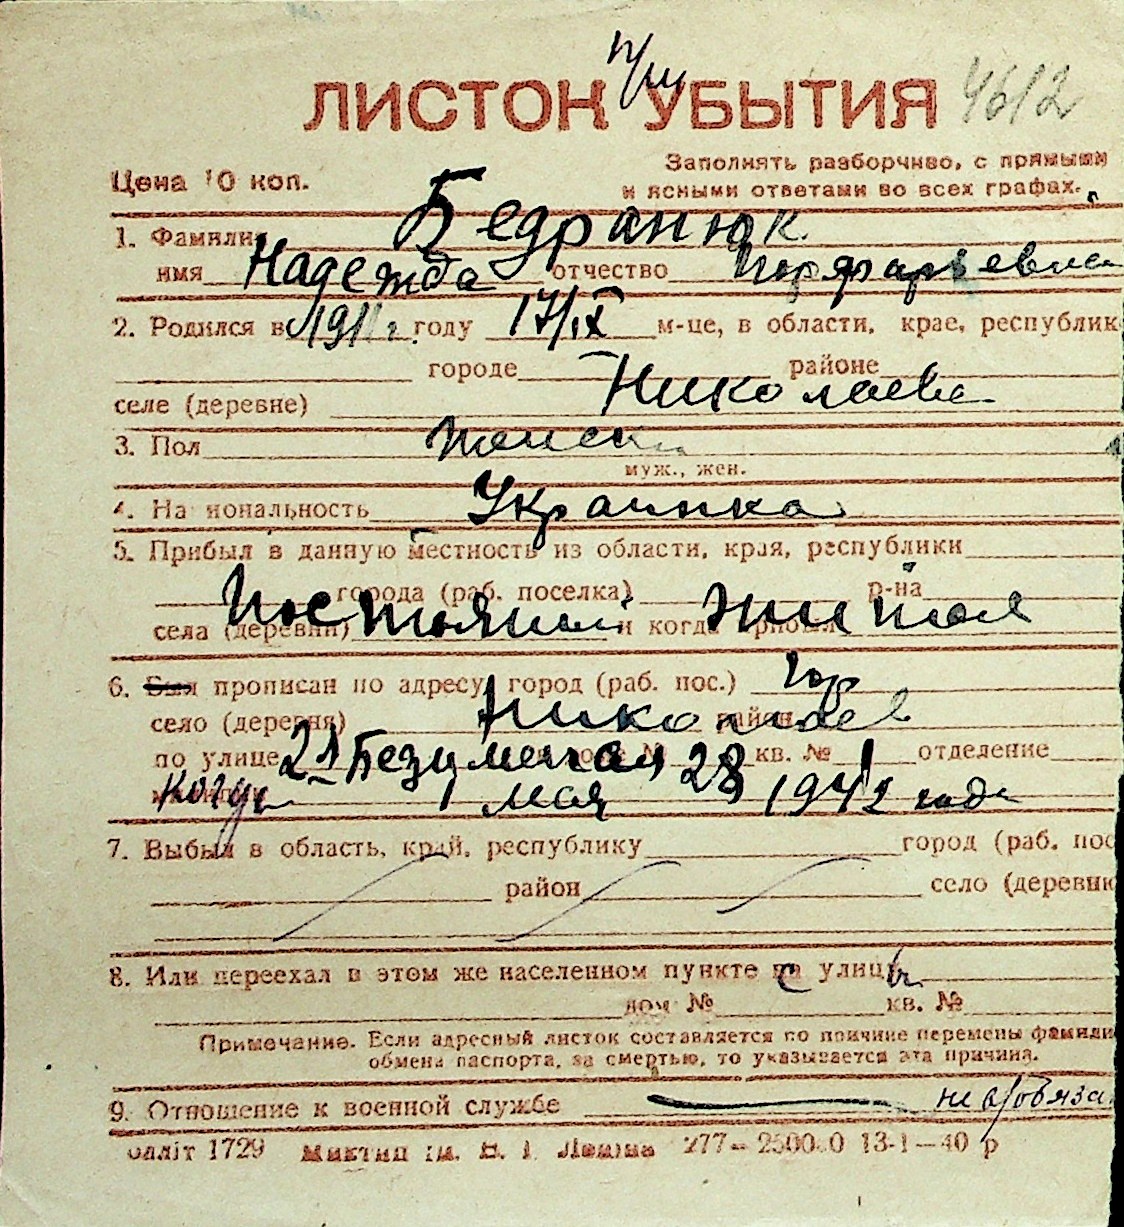 п/ш
ЛИСТОК УБЫТИЯ 4612
Цена 10 коп.
Заполнять разборчиво, с прямыми
и ясными ответами во всех графах.
1. Фамилия Бедранюк
имя Надежда отчество
2. Родился в 1911 г. году 17/IX м-це, в области, крае, республик
городе районе
Николаеве
селе (деревне)
3. Пол женск
муж., жен.
4. Национальность Украинка
5. Прибыл в данную местность из области, края, республики
города (раб. поселка) р-на
Постояный житель
села (деревни) и когда прибыл
6. Был прописан по адресу город (раб. пос.) гор
село (деревня) Николаев район
по улице 21 Безименая 28 кв. № 1 отделение
когда 1 мая 1942 года
7. Выбыл в область, край, республику город (раб. пос
район село (деревню
8. Или переехал в этом же населенном пункте с улицы
дом № кв. №
Примечание. Если адресный листок составляется по причине перемены фамили
обмена паспорта, за смертью, то указывается эта причина.
9. Отношение к военной службе не в/обяза
оаліт 1729 277— 2500.0 13-1—40 р